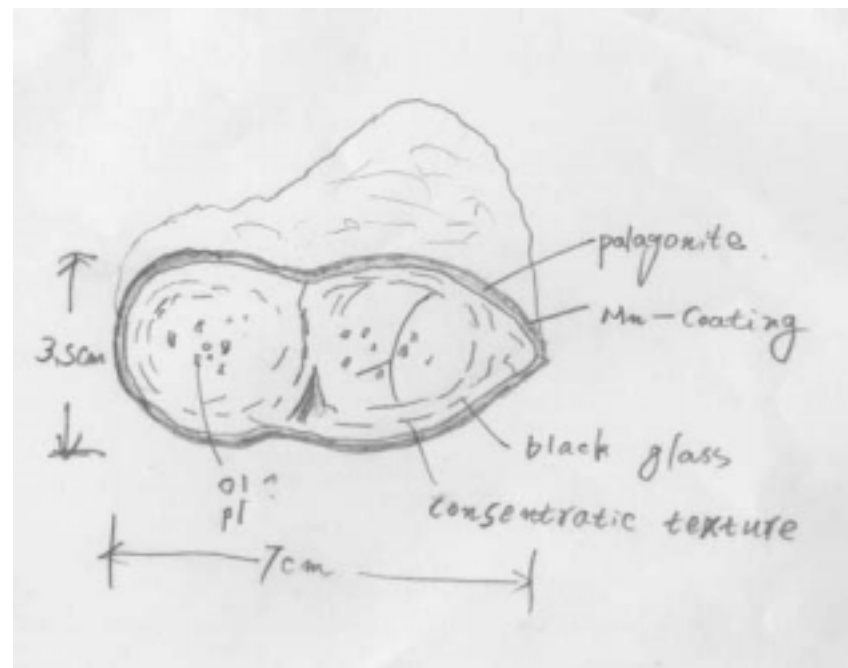 palagonite.
Mn-Coating
3.5cm
black glass
ol?
pl
consentratic texture
7cm